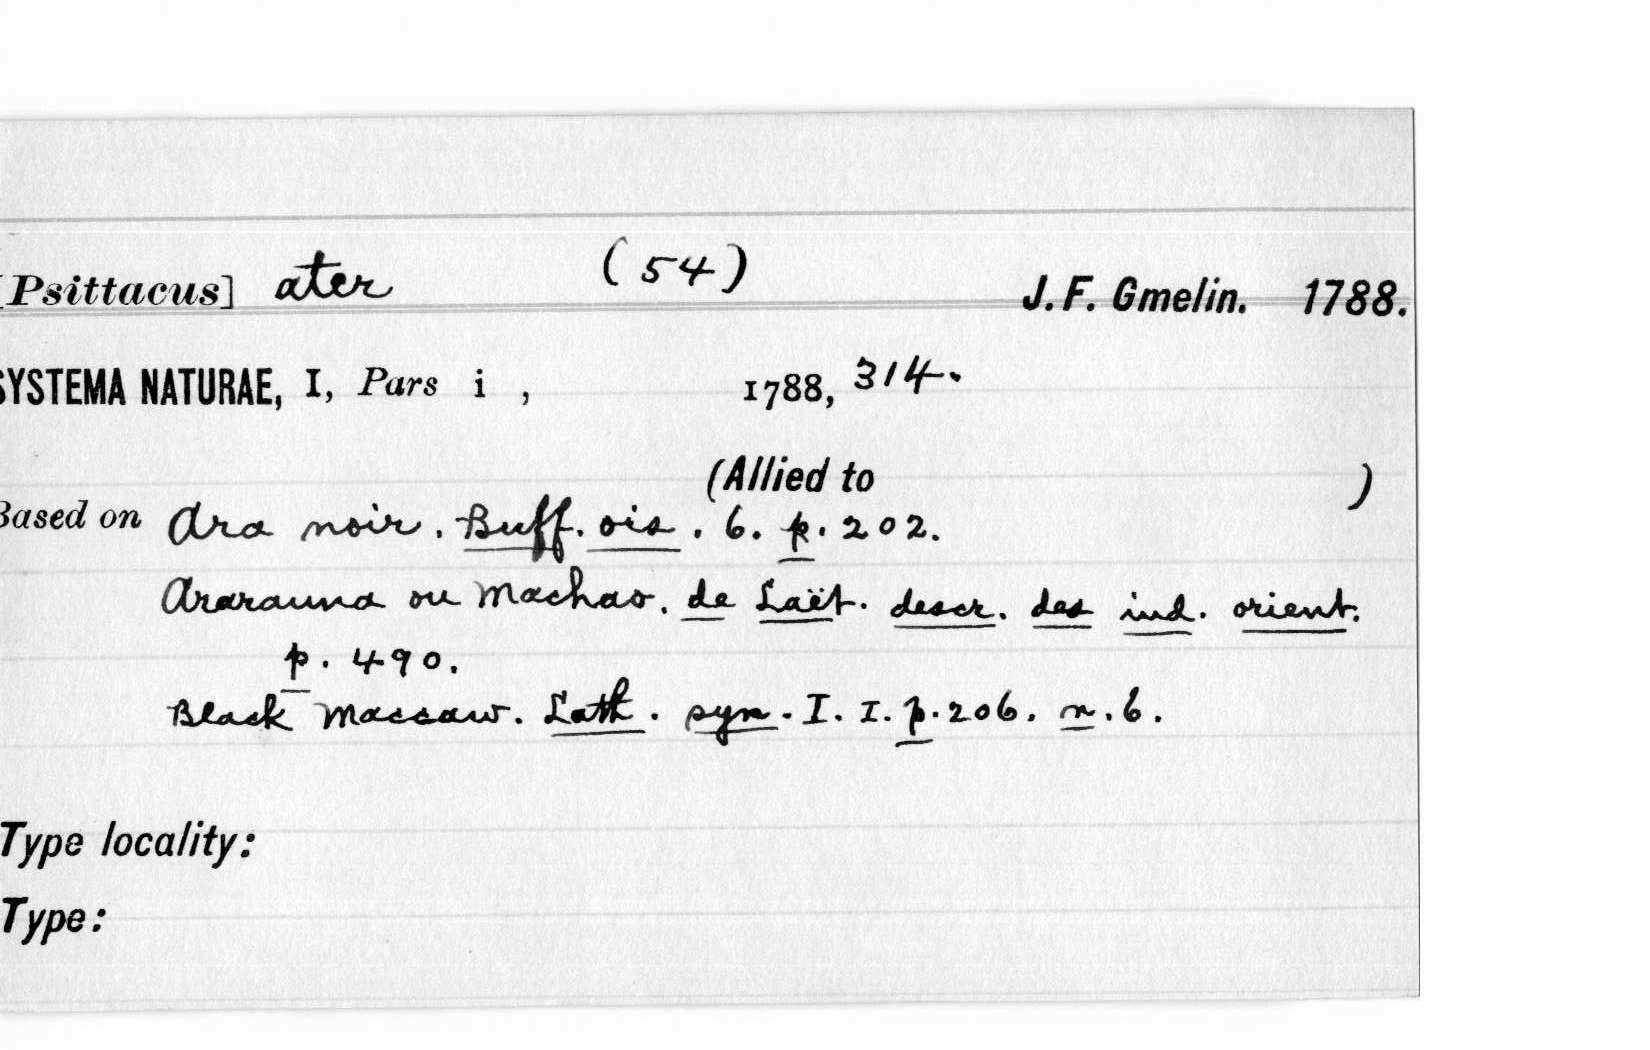 [Psittacus] ater (54) J. F. Gmelin. 1788.
SYSTEMA NATURAE, I, Pars i , 1788, 314.
(Allied to )
Based on Ara noir. Buff. ois. 6. p. 202.
Ararauna ou Machao. de Laët. descr. des ind. orient.
p. 490.
Black Maccaw. Lath. syn. I. I. p. 206. n. 6.
Type locality:
Type: